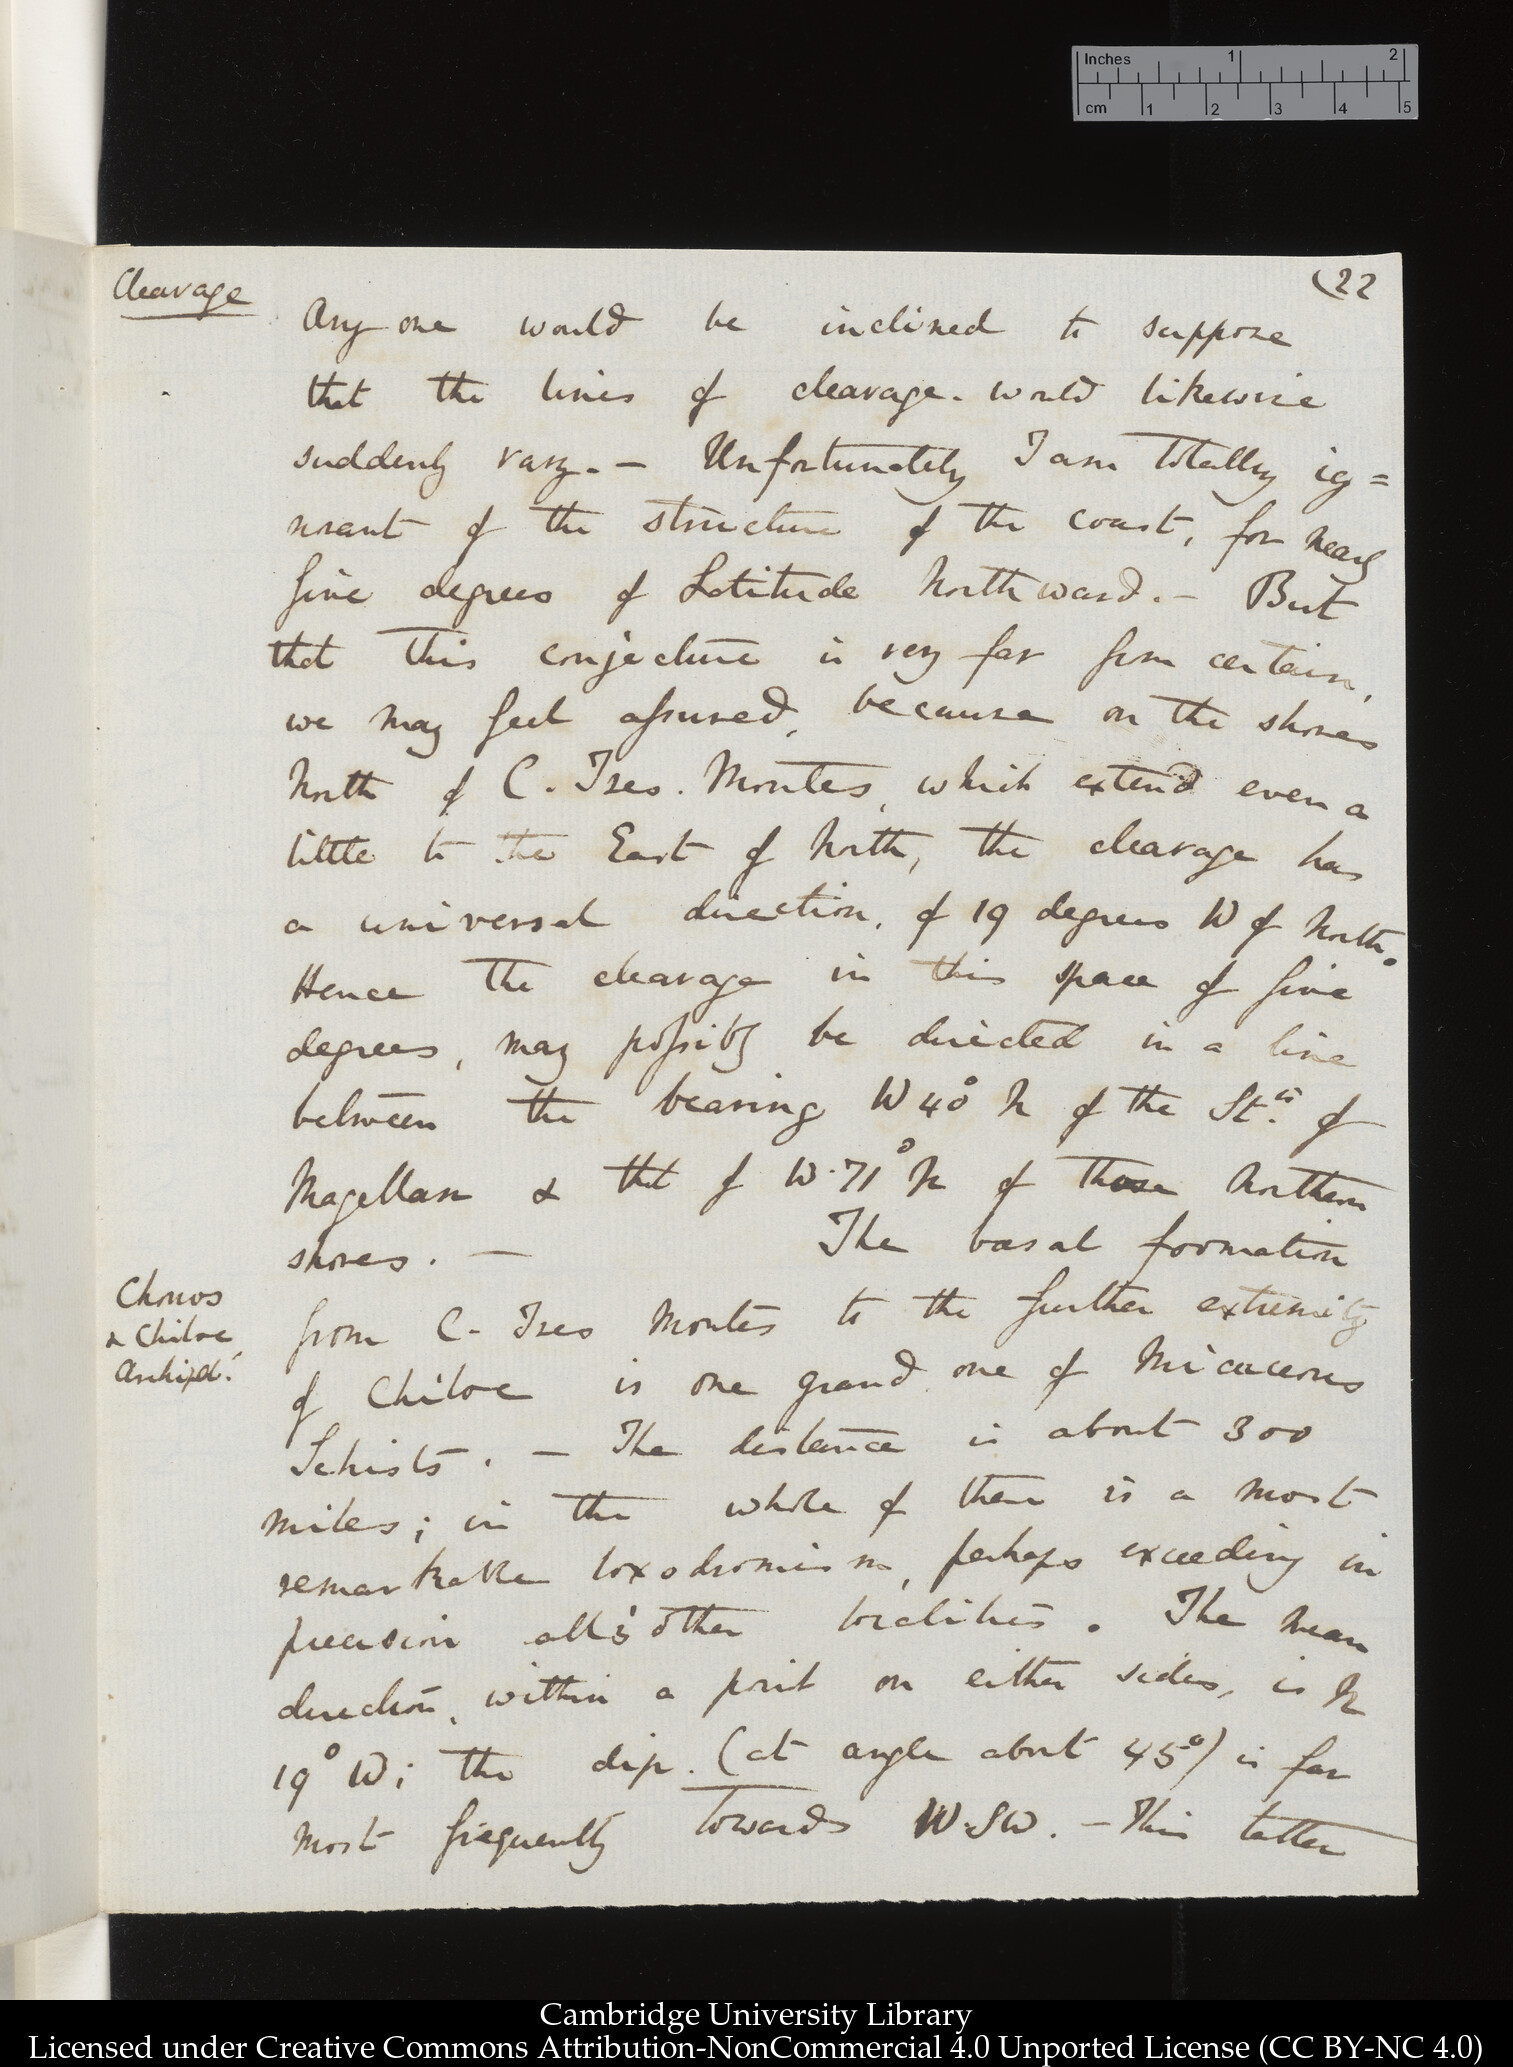 Inches 1 2
cm 1 2 3 4 5
Cleavage
(22
Any one would be inclined to suppose
that the lines of cleavage. would likewise
suddenly vary. — Unfortunately I am totally ig=
norant of the structure of the coast, for nearly
five degrees of Latitude Northward. — But
that this conjecture is very far from certain,
we may feel assured, because on the shores
North of C. Tres. Montes, which extend even a
little to the East of North, the cleavage has
a universal direction, of 19 degrees W of North.
Hence the cleavage in this space of five
degrees, may possibly be directed in a line
between the bearing W 40° N of the St.s of
Magellan & that of W. 71° N of those Northern
shores. — The basal formation
Chonos
& Chiloe
Archipel:
from C. Tres Montes to the further extremity
of Chiloe is one grand one of Micaceous
Schists. — The distance is about 300
miles; in the whole of there is a most
remarkable loxodromism, perhaps exceeding in
precision all other localities. The mean
direction, within a point on either sides, is N
19° W; the dip. (at angle about 45°) is far
most frequently towards W. SW. — This latter
Cambridge University Library
Licensed under Creative Commons Attribution-NonCommercial 4.0 Unported License (CC BY-NC 4.0)